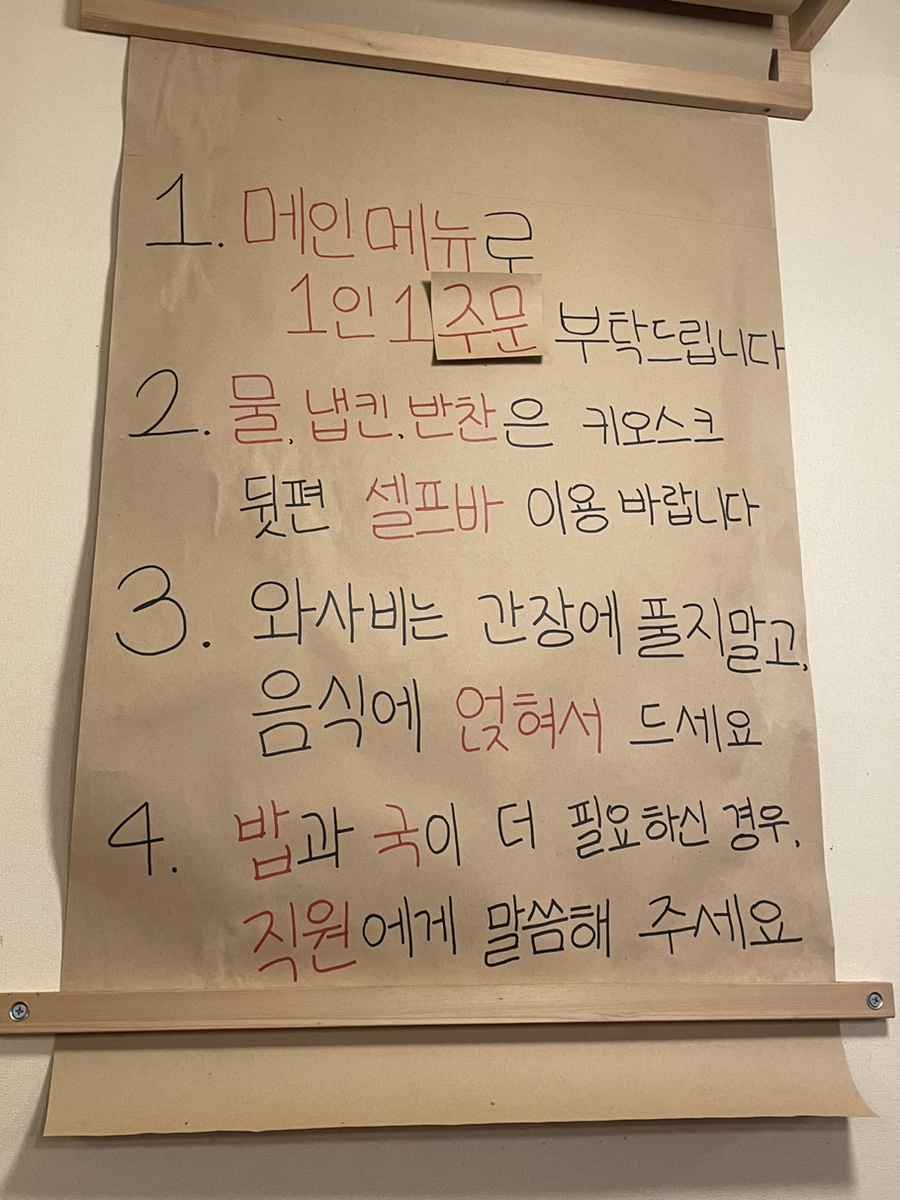 1. 메인메뉴로
1인 1주문 부탁드립니다
2. 물, 냅킨, 반찬은 키오스크
뒷편 셀프바 이용 바랍니다
3. 와사비는 간장에 풀지말고,
음식에 얹혀서 드세요
4. 밥과 국이 더 필요하신 경우,
직원에게 말씀해 주세요